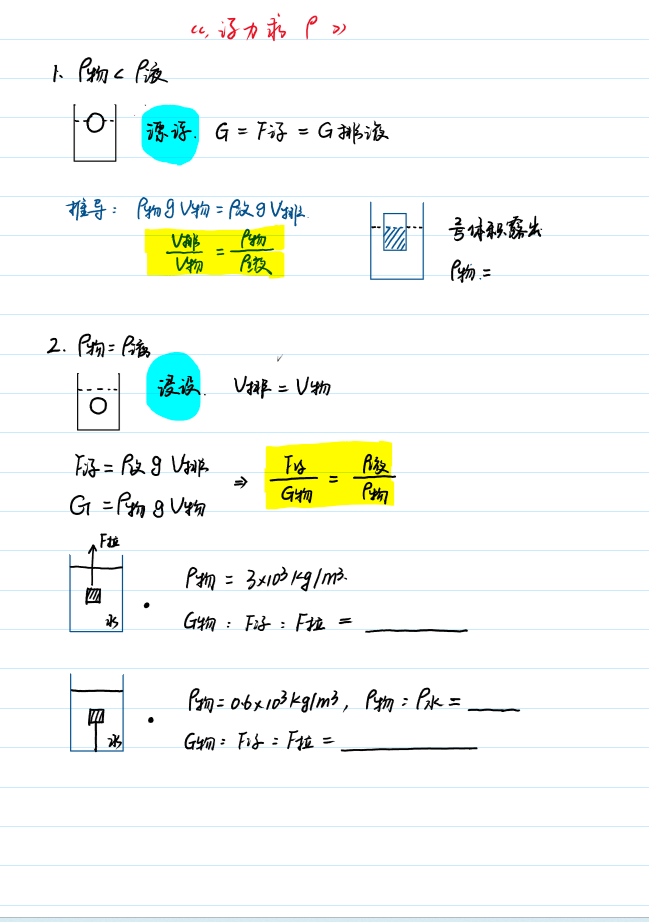 《浮力求ρ》
1. ρ物<ρ液
漂浮. G = F浮 = G排液
推导: ρ物gV物=ρ液gV排.
V排/V物 = ρ物/ρ液
体积露出
ρ物 =
2. ρ物=ρ液
浸没. V排 = V物
F浮 = ρ液 g V排
G = ρ物 g V物
⇒ F浮/G物 = ρ液/ρ物
F拉
水
ρ物 = 3×10³ kg/m³.
G物 : F浮 : F拉 = ______
水
ρ物=0.6×10³kg/m³, ρ物:ρ水=____
G物: F浮 : F拉 = ______